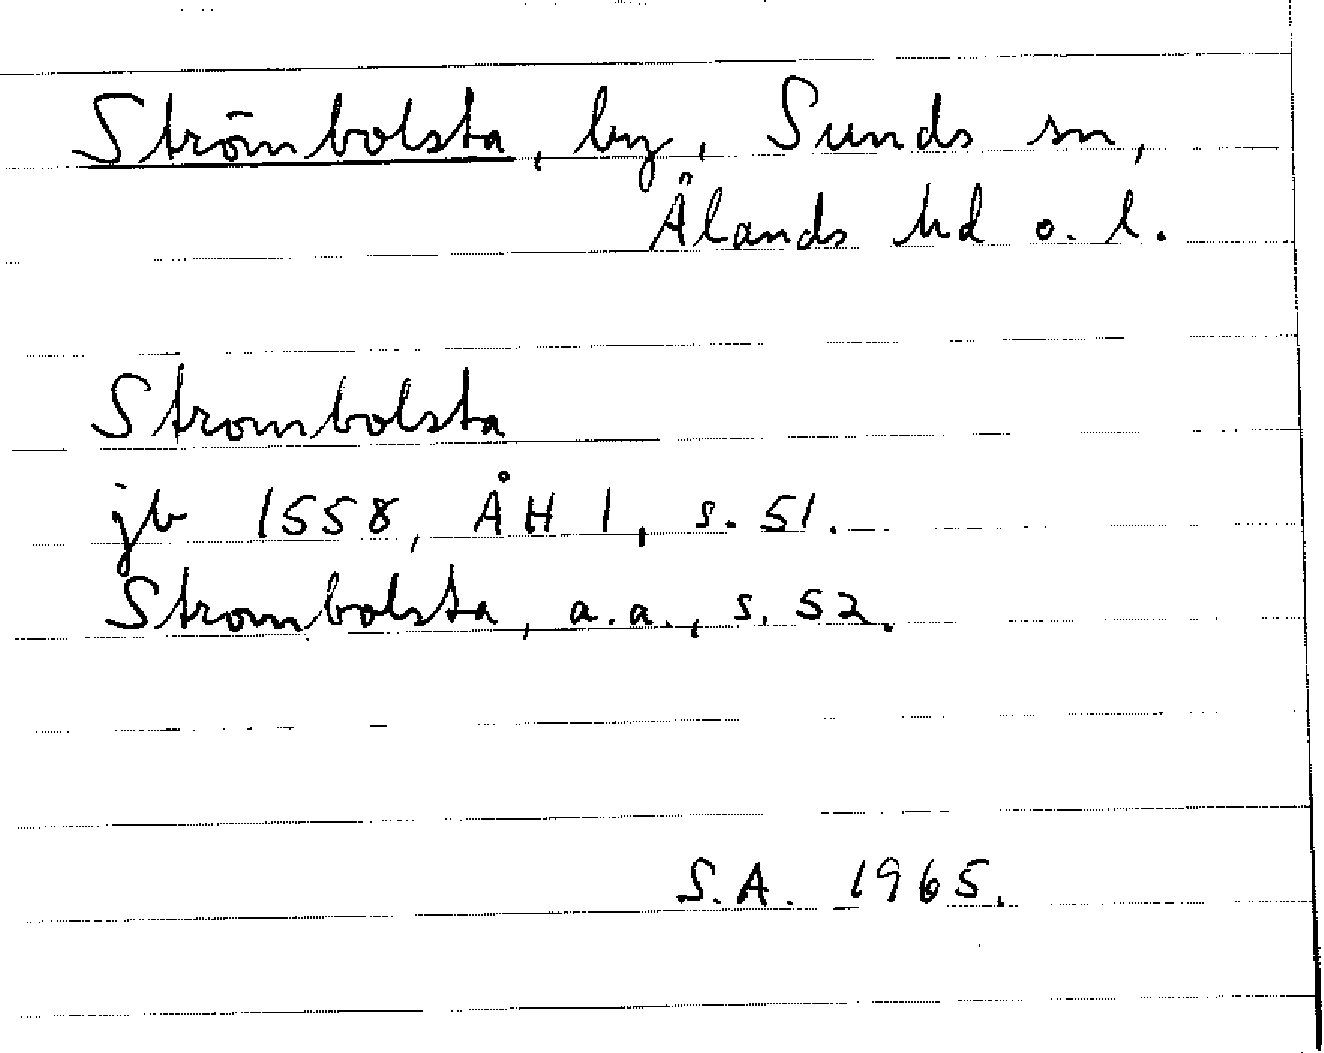 Strömbolsta, by, Sunds sn,
Ålands hd o. l.
Strombolsta
jb 1558, ÅH 1, s. 51.
Strombolsta, a.a., s. 52.
S.A. 1965.